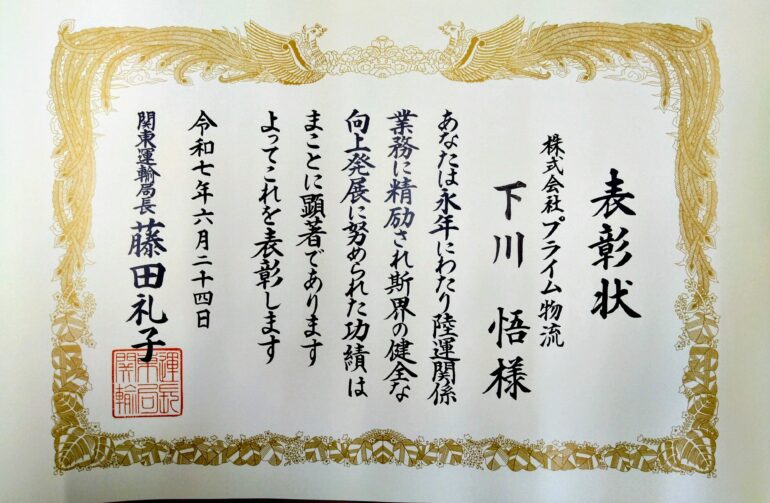 表彰状
株式会社プライム物流
下川 悟 様
あなたは永年にわたり陸運関係
業務に精励され斯界の健全な
向上発展に努められた功績は
まことに顕著であります
よってこれを表彰します
令和七年六月二十四日
関東運輸局長 藤田礼子